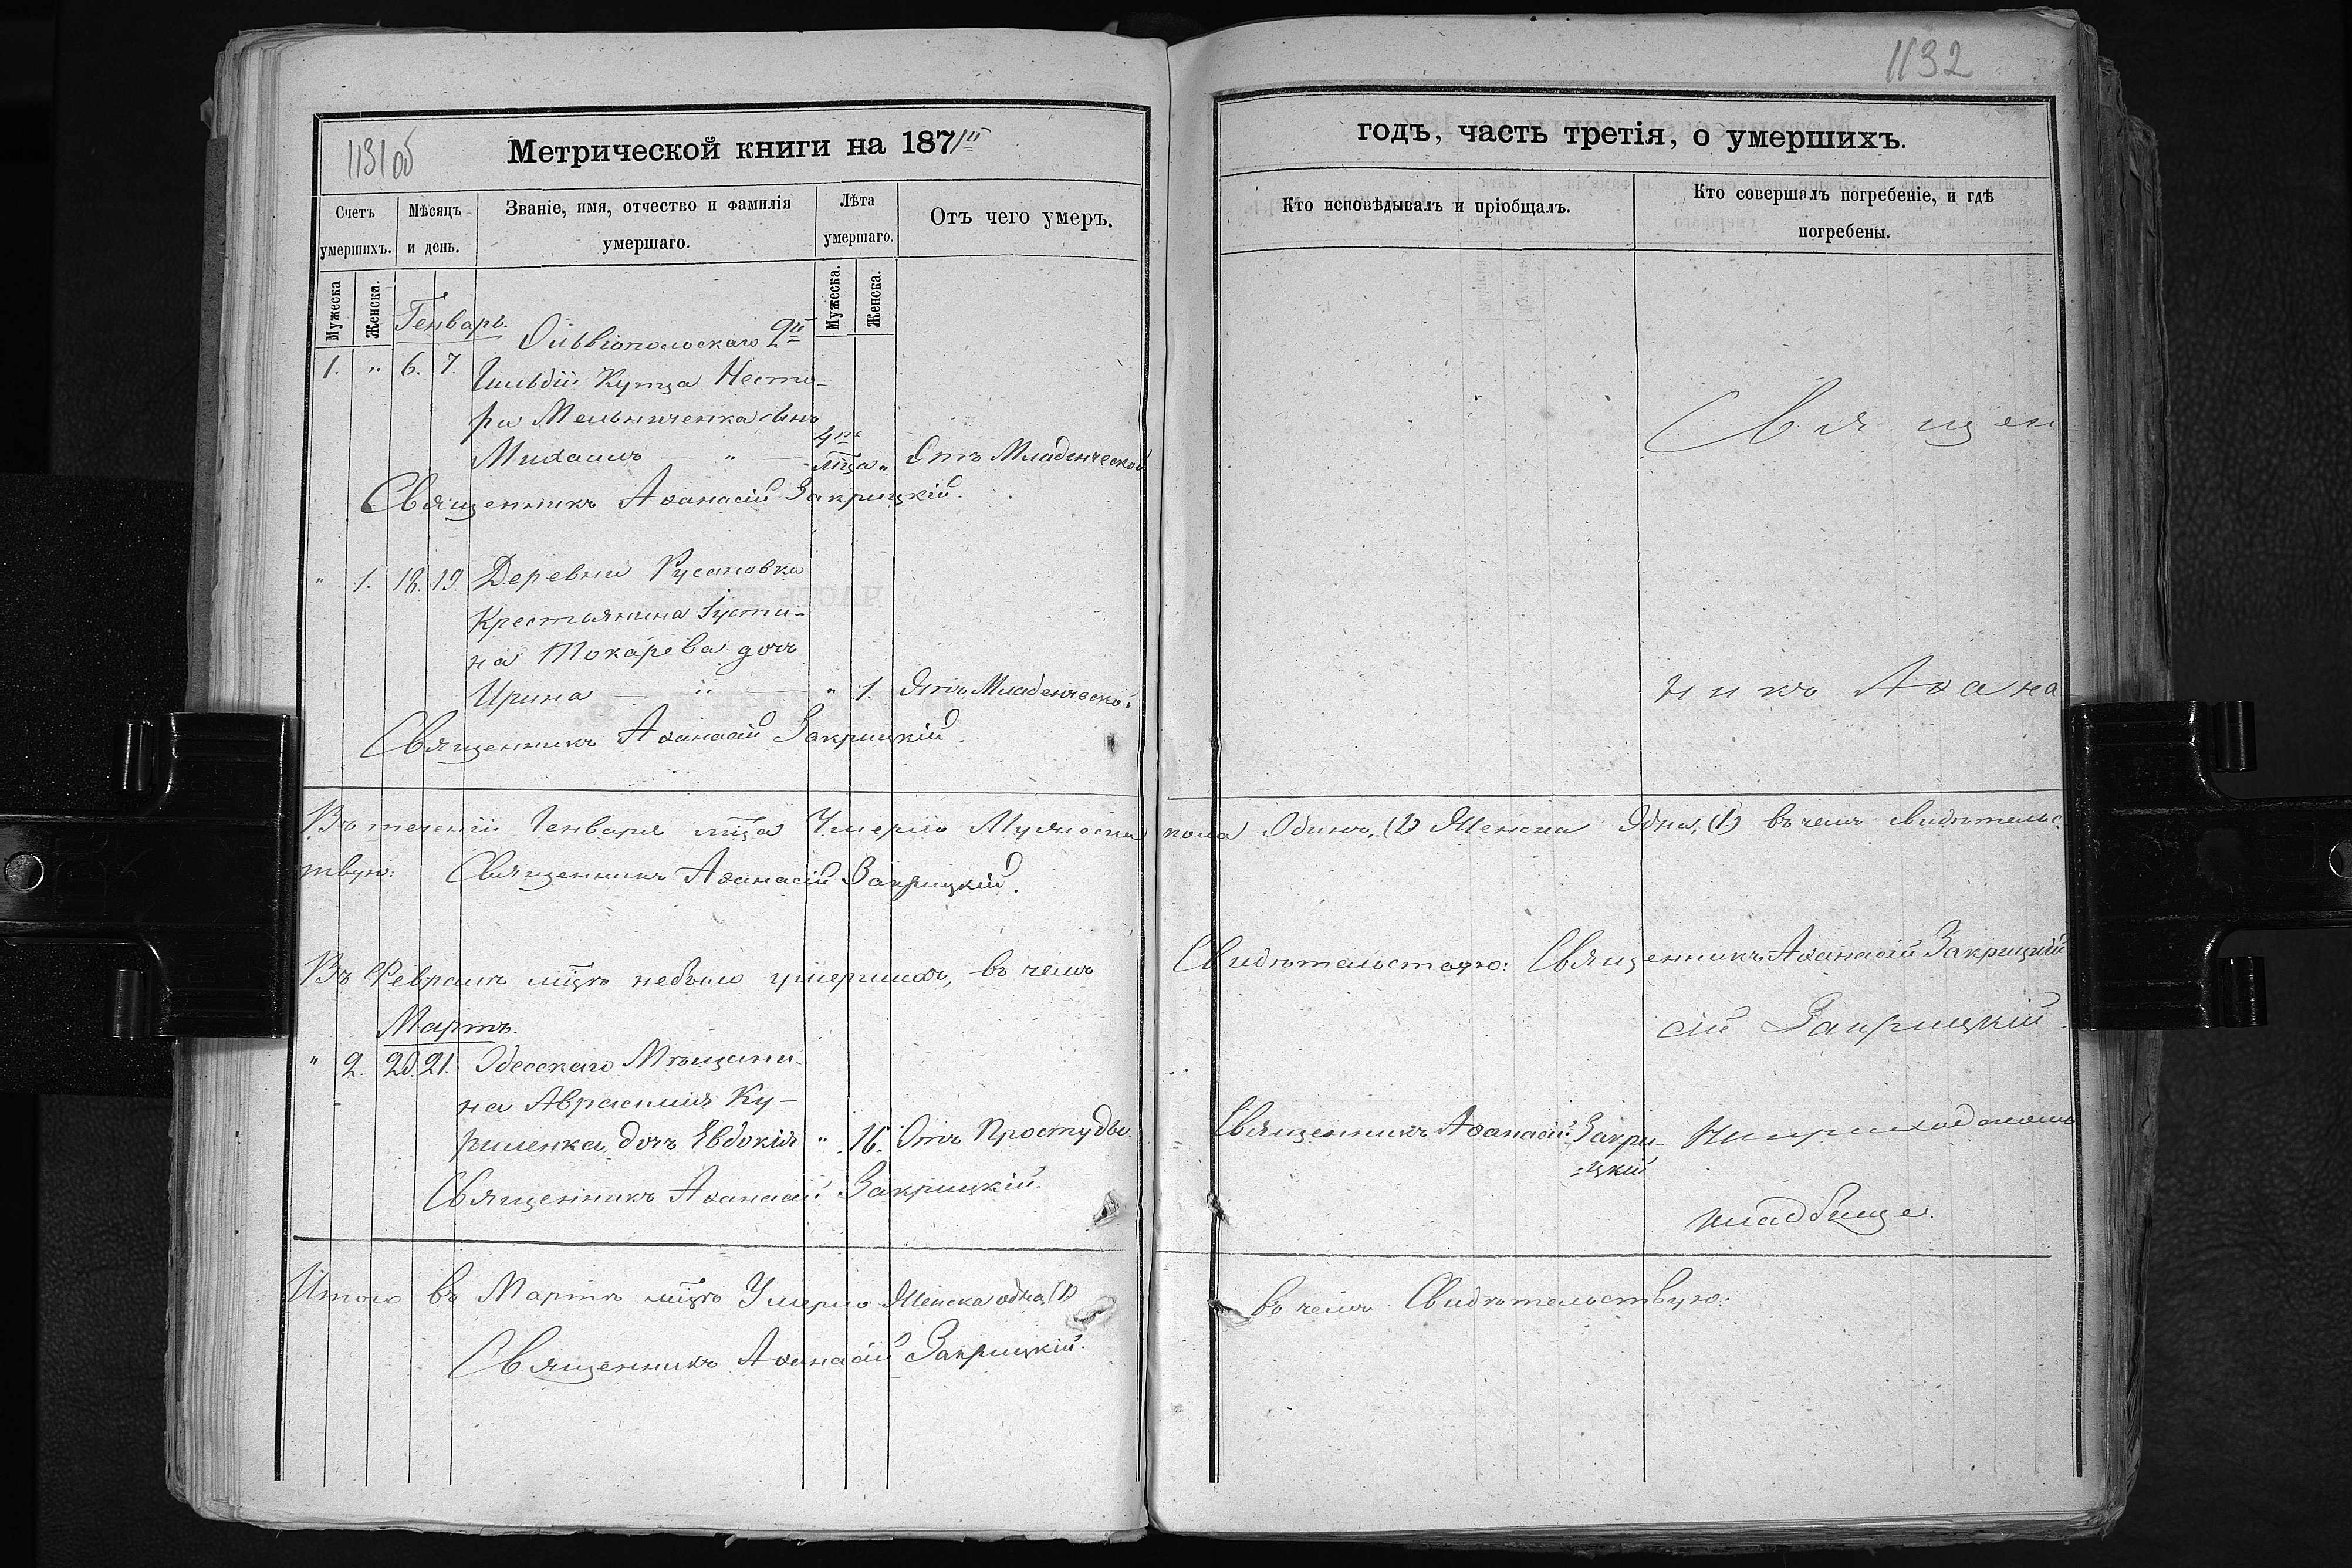 1132
1131 об
Метрической книги на 1871й
годъ, часть третія, о умершихъ.
Счетъ умершихъ.
Мѣсяцъ и день.
Званіе, имя, отчество и фамилія умершаго.
Лѣта умершаго.
Отъ чего умеръ.
Кто исповѣдывалъ и пріобщалъ.
Кто совершалъ погребеніе, и гдѣ погребены.
Мужеска
Женска.
Мужеска.
Женска.
Генварь.
Ольвіопольскаго 2й
1. " 6. 7. Гильдіи Купца Несто-
ра Мельниченка сынъ
Михаилъ — " — 4хъ мца " Отъ Младенческой
Священникъ Аѳанасій Закрицкій.
" 1. 18. 19. Деревни Русановки
Крестьянина Іусти-
на Токарева дочь
Ирина — " — " 1. Отъ Младенческой
Священникъ Аѳанасій Закрицкій.
Священ-
никъ Аѳана-
Въ теченіи Генваря мца Умерло Мужеска пола Одинъ, (1) Женска Одна, (1) въ чемъ свидѣтельс-
твую: Священникъ Аѳанасій Закрицкій.
Въ Февралѣ мцѣ небыло умершихъ, въ чемъ Свидѣтельствую: Священникъ Аѳанасій Закрицкій
сій Закрицкій.
Мартъ.
" 2. 20. 21. Одесскаго Мѣщани-
на Авраамія Ку-
риленка дочь Евдокія " 16. Отъ Простуды.
Священникъ Аѳанасій Закрицкій.
Священникъ Аѳанасій Закри-
=цкій
На приходскомъ
кладбище.
Итого въ Мартѣ мцѣ Умерло Женска одна, (1) въ чемъ Свидѣтельствую:
Священникъ Аѳанасій Закрицкій.